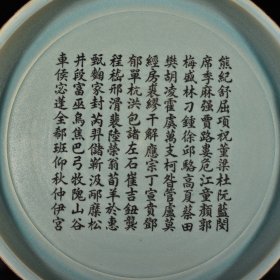 熊紀舒屈項祝董梁杜阮藍閔
席季麻强賈路婁危江童顏郭
梅盛林刁鍾徐邱駱高夏蔡田
樊胡凌霍虞萬支柯昝管盧莫
經房裘繆干解應宗丁宣賁鄧
郁單杭洪包諸左石崔吉鈕龔
程嵇邢滑裴陸榮翁荀羊於惠
甄麴家封芮羿儲靳汲邴糜松
井段富巫烏焦巴弓牧隗山谷
車侯宓蓬全郗班仰秋仲伊宮